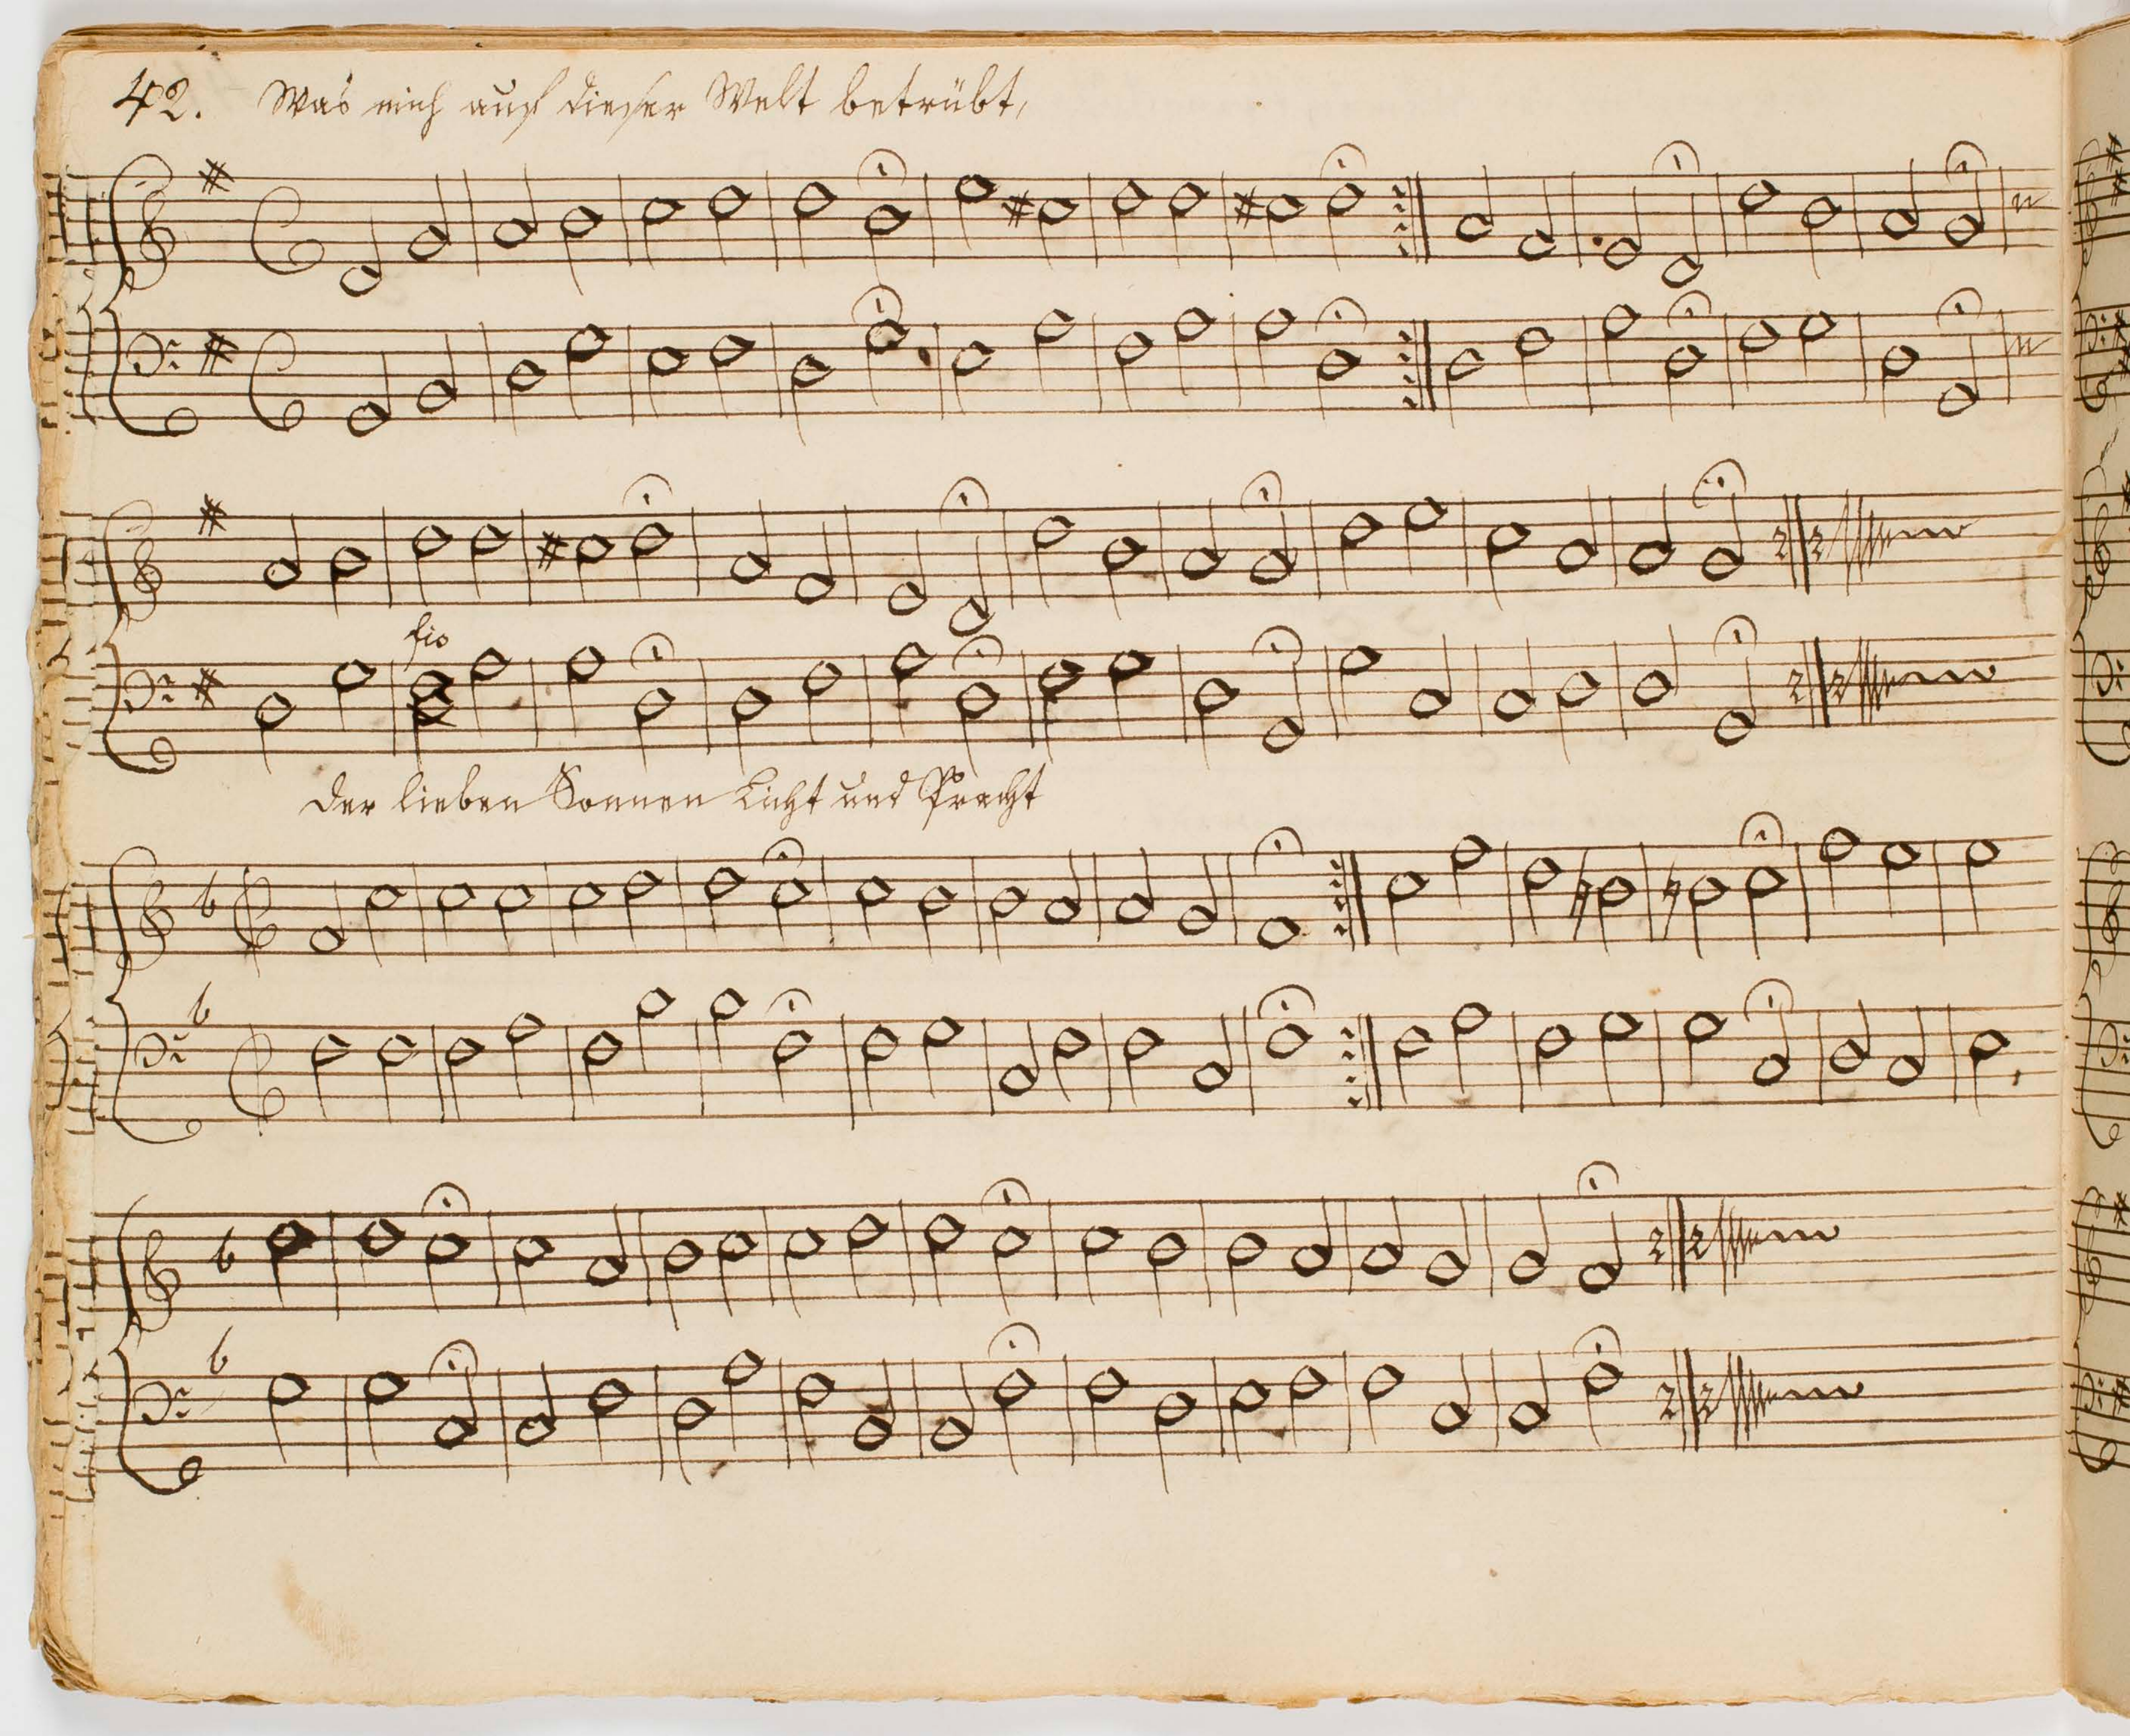 42. Was mich auf dieser Welt betrübt,
fis
Der lieben Sonnen Licht und Pracht